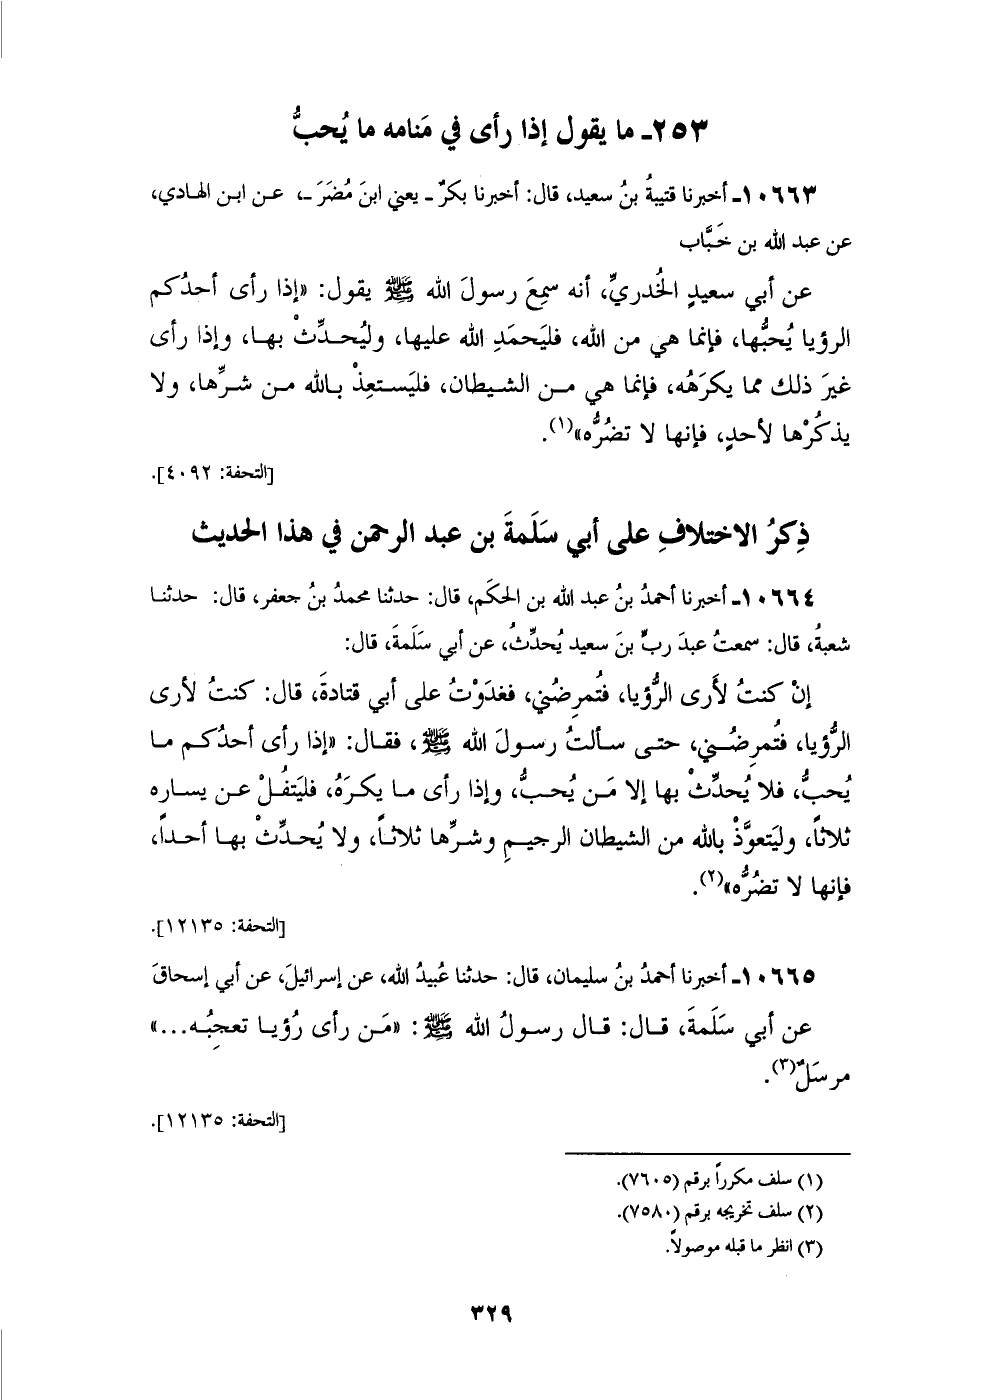 ٢٥٣ـ ما يقول إذا رأى في مَنامه ما يُحبُّ
١٠٦٦٣ـ أخبرنا قتيبةُ بنُ سعيد، قال: أخبرنا بكرٌ ـ يعني ابنَ مُضَرَ ـ، عـن ابـن الهادي،
عن عبد الله بن خَبَّاب
عن أبي سعيدٍ الخُدريِّ، أنه سمِعَ رسولَ الله ﷺ يقول: «إذا رأى أحدُكم
الرؤيا يُحبُّها، فإنما هي من الله، فليَحمَدِ الله عليها، وليُحـدِّثْ بهـا، وإذا رأى
غيرَ ذلك مما يكرَهُه، فإنما هي مـن الشيطان، فليَستعِذْ بـالله مـن شـرِّها، ولا
يذكُرْها لأحدٍ، فإنها لا تضُرُّه»(١).
[التحفة: ٤٠٩٢].
ذِكرُ الاختلافِ على أبي سَلَمةَ بن عبد الرحمن في هذا الحديث
١٠٦٦٤ـ أخبرنا أحمدُ بنُ عبد الله بن الحكَم، قال: حدثنا محمدُ بنُ جعفر، قال: حدثنـا
شعبةُ، قال: سمعتُ عبدَ ربِّ بنَ سعيد يُحدِّثُ، عن أبي سَلَمةَ، قال:
إنْ كنتُ لأَرى الرُّؤيا، فتُمرِضُني، فغدَوْتُ على أبي قتادةَ، قال: كنتُ لأرى
الرُّؤيا، فتُمرِضُـني، حتـى سـألتُ رسـولَ الله ﷺ، فقـال: «إذا رأى أحدُكـم مـا
يُحبُّ، فلا يُحدِّثْ بها إلا مَـن يُحـبُّ، وإذا رأى مـا يكـرَهُ، فليَتفُلْ عـن يسـاره
ثلاثاً، وليَتعوَّذْ بالله من الشيطان الرجيـمِ وشـرِّها ثلاثـاً، ولا يُحـدِّثْ بهـا أحـداً،
فإنها لا تضُرُّه»(٢).
[التحفة: ١٢١٣٥].
١٠٦٦٥ـ أخبرنا أحمدُ بنُ سليمان، قال: حدثنا عُبيدُ الله، عن إسرائيلَ، عن أبي إسحاقَ
عن أبي سَلَمةَ، قـال: قـال رسـولُ الله ﷺ: «مَـن رأى رُؤيـا تعجِبُـه...»
مرسَلٌ(٣).
[التحفة: ١٢١٣٥].
(١) سلف مكرراً برقم (٧٦٠٥).
(٢) سلف تخريجه برقم (٧٥٨٠).
(٣) انظر ما قبله موصولاً.
٣٢٩